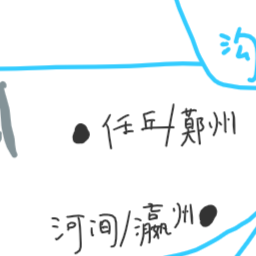 沟
任丘/鄭州
河间/瀛州